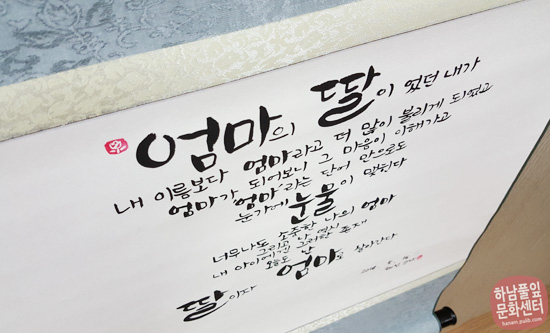 엄마의 딸이 었던 내가
내 이름보다 엄마라고 더 많이 불리게 되었고
엄마가 되어보니 그 마음이 이해가고
엄마 라는 단어 만으로도
눈가에 눈물이 맺힌다
너무나도 소중한 나의 엄마
그리고 나 역시
내 아이에겐 그러한 존재
오늘도 난
엄마로 살아간다
딸이다
하남풀잎
문화센터
hanam.pulib.com